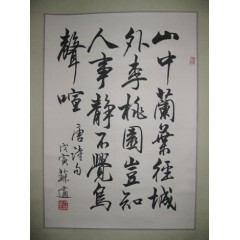 山中蘭葉徑城
外李桃園豈知
人事靜不覺鳥
聲喧
唐詩句
戊寅蘇